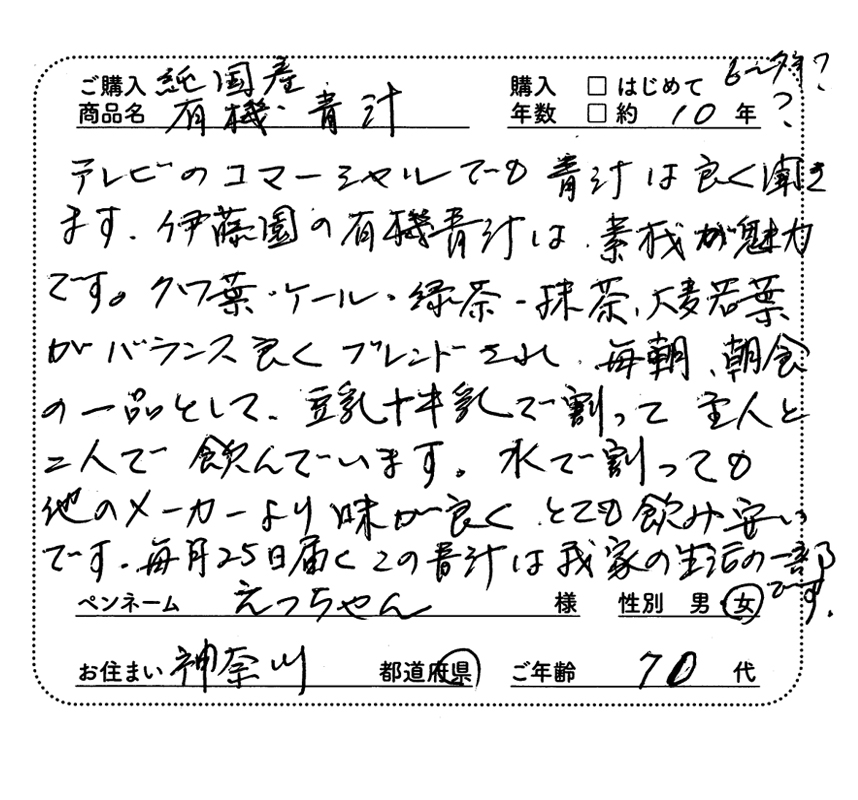 ご購入 純国産 購入 □はじめて
商品名 有機・青汁 年数 □約 10 年 ?
テレビのコマーシャルでも青汁は良く聞き
ます、伊藤園の有機青汁は、素材が魅力
です。クワ葉・ケール・緑茶・抹茶、大麦若葉
がバランス良くブレンドされ、毎朝、朝食
の一品として、豆乳十牛乳で割って主人と
二人で飲んでいます。水で割っても
他のメーカーより味が良く、とても飲み安い
です。毎月25日届くこの青汁は我家の生活の一部
です。
ペンネーム えっちゃん 様 性別 男 女
お住まい 神奈川 都道府県 ご年齢 70 代